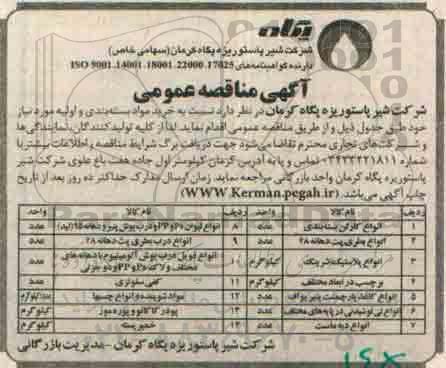 پگاه
شرکت شیر پاستوریزه پگاه کرمان (سهامی خاص)
دارنده گواهینامه‌های ISO 9001.14001.18001.22000.17025
آگهی مناقصه عمومی
شرکت شیر پاستوریزه پگاه کرمان در نظر دارد نسبت به خرید مواد بسته‌بندی و اولیه مورد نیاز
خود طبق جدول ذیل و از طریق مناقصه عمومی اقدام نماید. لذا از کلیه تولید کنندگان، نمایندگی‌ها
و شرکت‌های تجاری محترم تقاضا می‌شود جهت دریافت برگ شرایط مناقصه و اطلاعات بیشتر با
شماره ۰۳۴۳۳۲۲۱۸۱۱ تماس و یا به آدرس کرمان کیلومتر اول جاده هفت باغ علوی شرکت شیر
پاستوریزه پگاه کرمان واحد بازرگانی مراجعه نمایند. زمان ارسال مدارک حداکثر ده روز بعد از تاریخ
چاپ آگهی می‌باشد. (WWW.Kerman.pegah.ir)
ردیف نام کالا واحد ردیف نام کالا واحد
۱ انواع کارتن بسته‌بندی عدد ۸ انواع لیوان PP و PS و درب پوش پنیر و دهانه ۹۵ (لید) عدد
۲ انواع بطری پت دهانه ۲۸ عدد ۹ انواع درب بطری پت دهانه ۲۸ عدد
۳ انواع پلاستیک شرینک کیلوگرم ۱۰ انواع فویل درب پوش آلومینیوم با دهانه‌های مختلف و لاک PS و PP و دو جزئی عدد
۴ برچسب در ابعاد مختلف کیلوگرم ۱۱ کفی سلوازی عدد
۵ انواع کاغذ پارچمنت پنیر یواف عدد ۱۲ مواد شوینده و انواع چسبها عدد/کیلوگرم
۶ انواع نی نوشیدنی در پایه‌های مختلف عدد ۱۳ پودر کاکائو و پوره موز کیلوگرم
۷ انواع دبه ماست عدد ۱۴ خمیر پسته کیلوگرم
شرکت شیر پاستوریزه پگاه کرمان - مدیریت بازرگانی